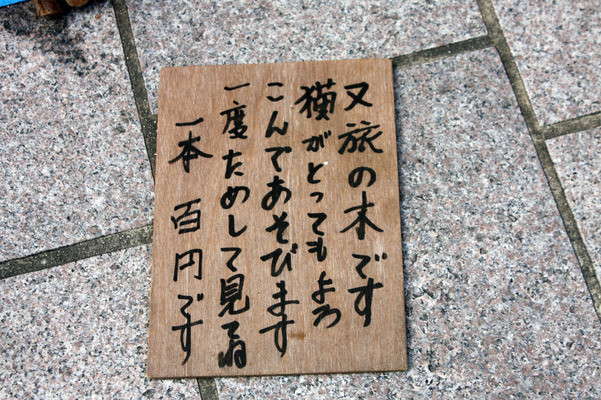 又旅の木です
猫がとってもよろ
こんであそびます
一度ためして見てね
一本 百円です